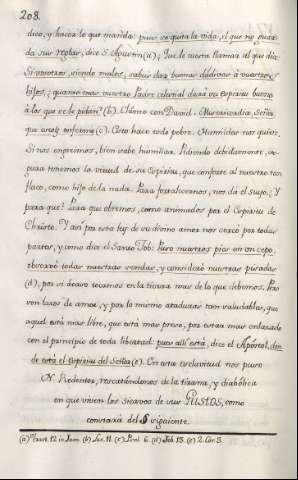 208.
dice, y hacer lo que manda: pues se quita la vida, el que no guar-
da sus reglas, dice S. Agustin (a); Que le cuesta llamar al que dice
Si vosotros, siendo malos, sabeis dar buenas dádivas á vuestros
hijos, ¿ quanto mas vuestro Padre celestial dará su espiritu bueno
à los que se le piden? (b). Clámo con David. Misericordia, Señor,
que estoy enfermo (c). Esto hace todo pobre. Humildes nos quiere.
Si nos engreimos, bien sabe humillar. Pidiendo debidamente, se-
gura tenemos la virtud de su Espiritu, que conforte al nuestro tan
flaco, como hijo de la nada. Para fortalecernos, nos da el suyo. ¿ Y
para que? Para que obremos, como animados por el Espiritu de
Christo. Y asi por esta ley de su divino amor nos cercó por todas
partes, y como dice el Santo Job: Puso nuestros pies en un cepo,
observó todas nuestras sendas, y consideró nuestras pisadas
(d), por si acaso tocamos en la tierra mas de lo que debemos. Pero
son lazos de amor, y por lo mismo ataduras tan saludables, que
aquel está mas libre, que está mas preso, por estar mas enlazado
con el principio de toda libertad: pues alli está, dice el Apóstol, don-
de está el Espiritu del Señor (e). En esta esclavitud nos puso
N. Redentor, rescatándonos de la tirana, y diabólica
en que viven los siervos de sus GUSTOS, como
constará del § siguiente.
(a) Tract. 12 in Joan. (b) Luc. 11. (c) Psal. 6. (d) Job. 13. (e) 2. Cor. 3.